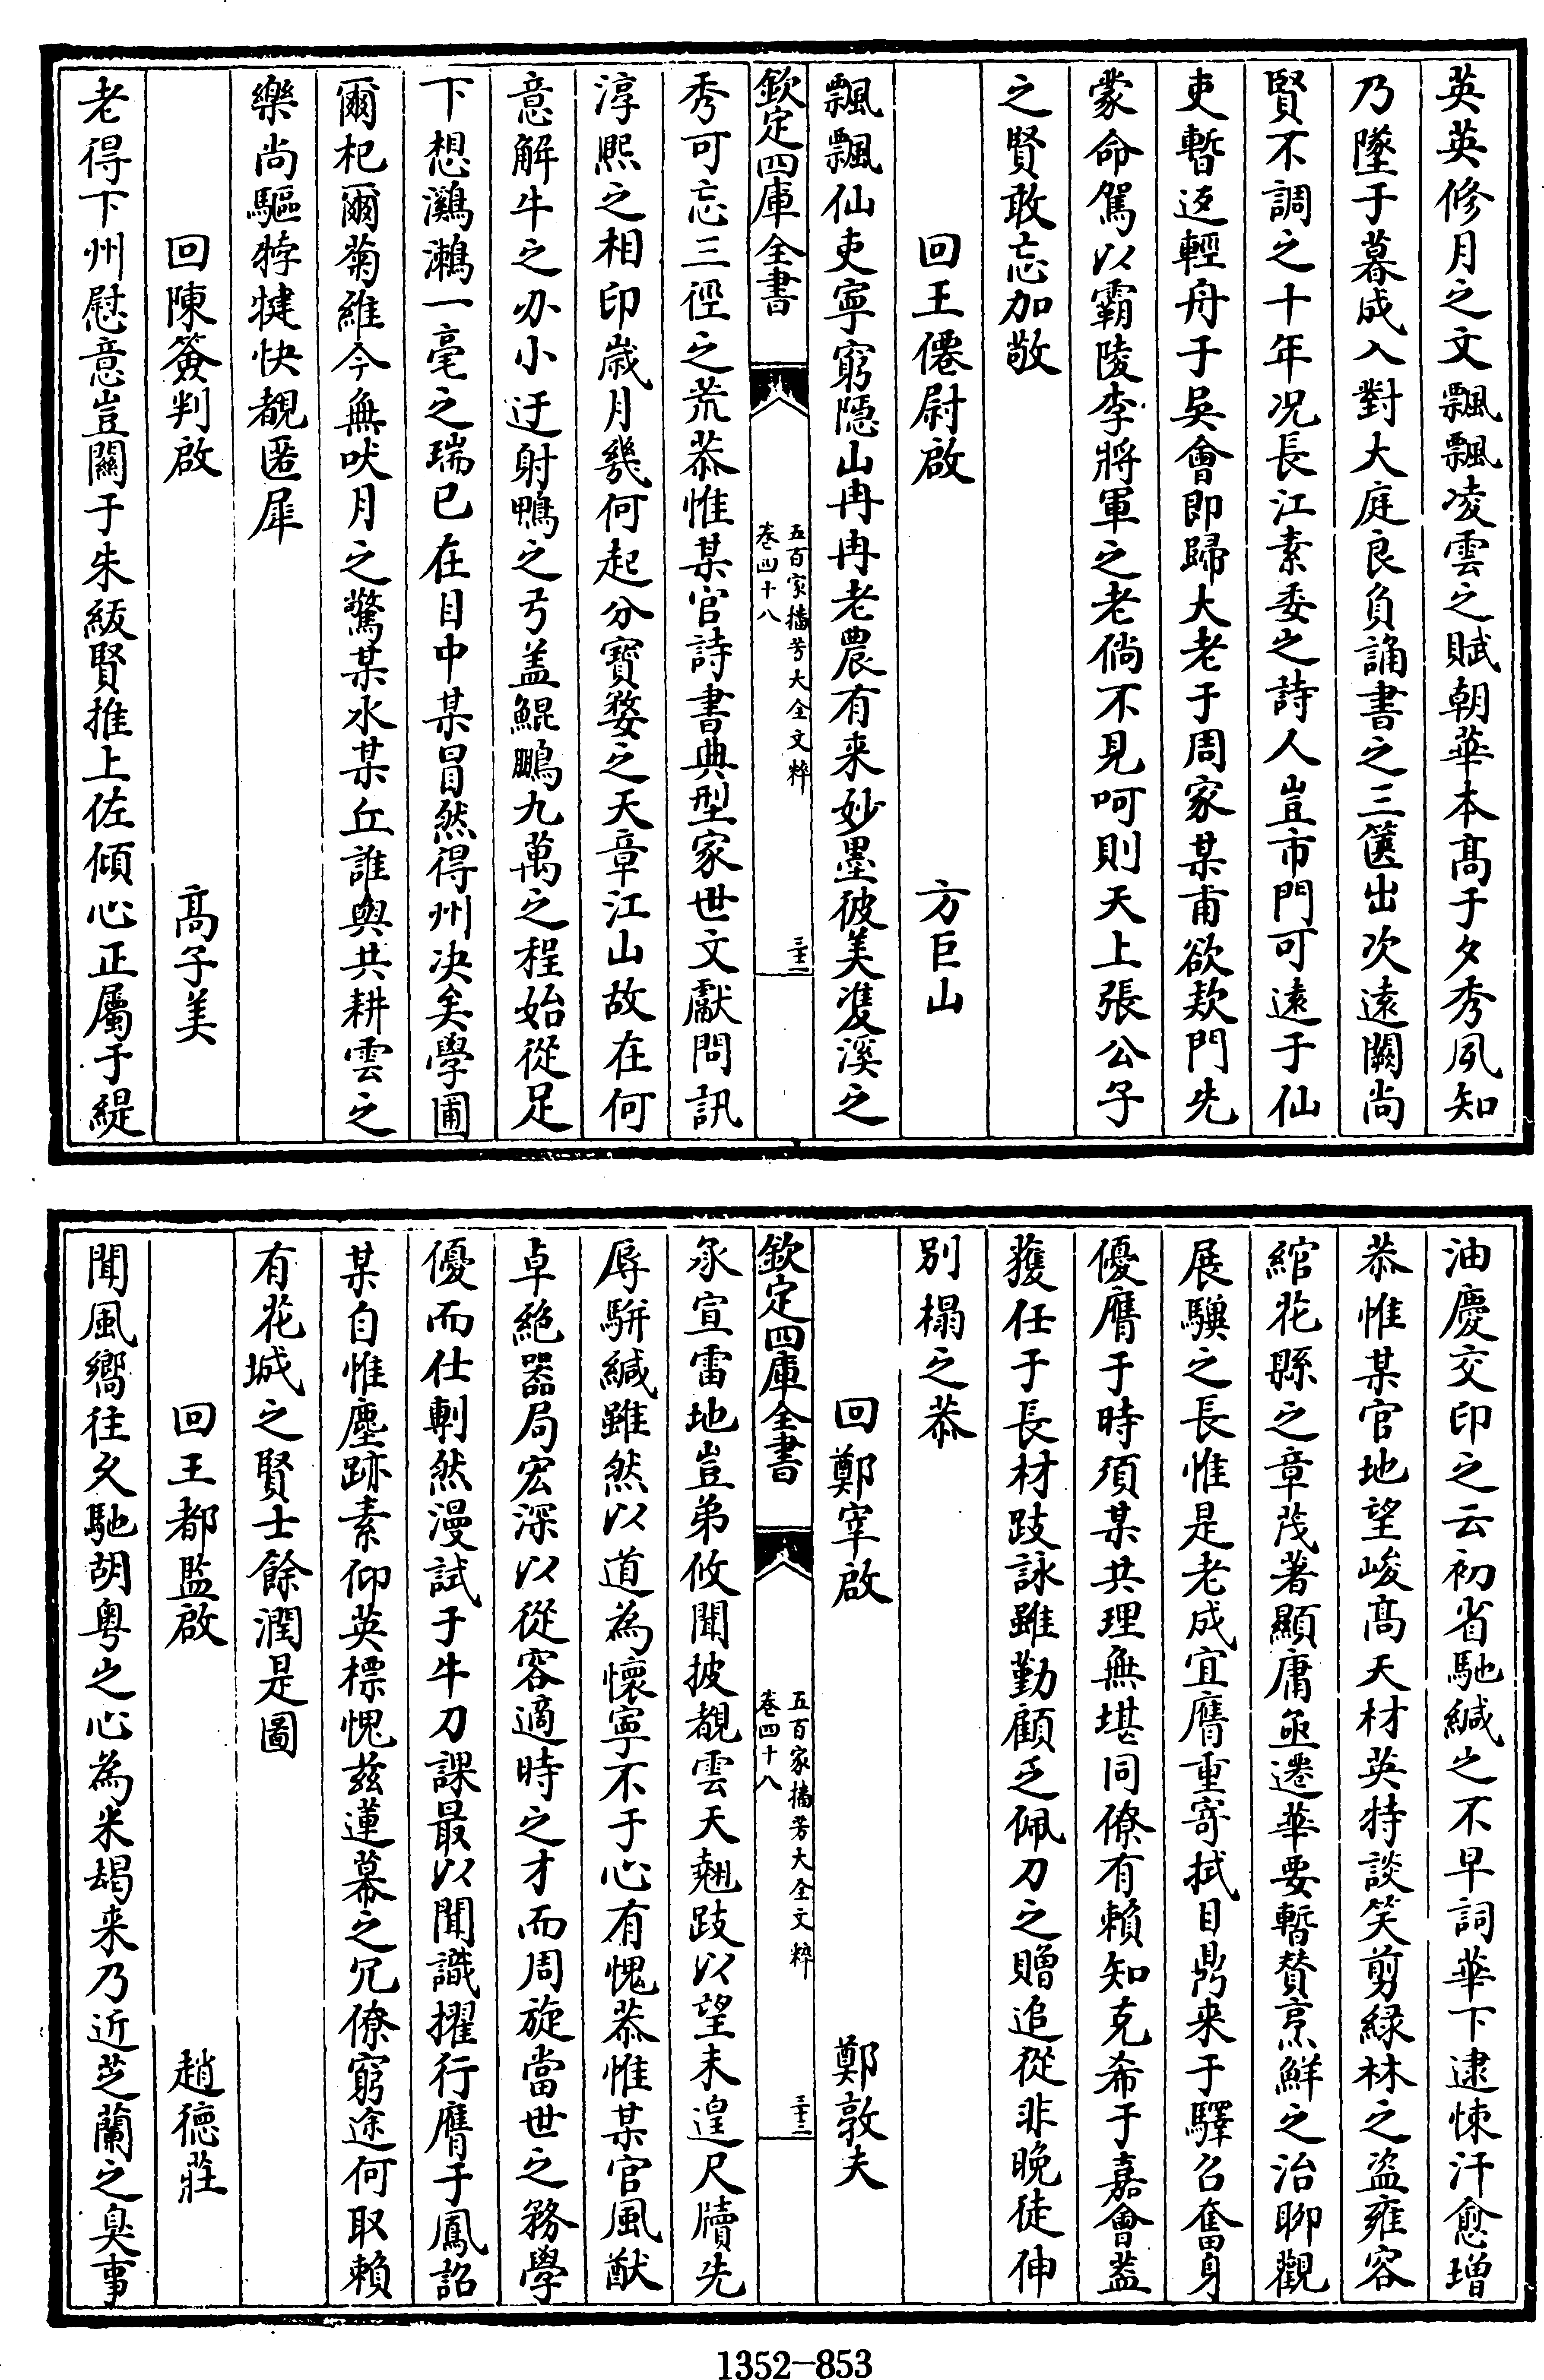 英英修月之文飄飄凌雲之賦朝華本高于夕秀夙知
乃墜于暮成入對大庭良負誦書之三篋出次遠闕尚
賢不調之十年况長江素委之詩人豈市門可遠于仙
吏暫迓輕舟于吳會即歸大老于周家某甫欲欵門先
蒙命駕以霸陵李將軍之老倘不見呵則天上張公子
之賢敢忘加敬
回王僊尉啟 方巨山
飄飄仙吏寧窮隱山冉冉老農有来妙墨彼美雙溪之
欽定四庫全書 五百家播芳大全文粹 卷四十八 三十二
秀可忘三徑之荒恭惟某官詩書典型家世文獻問訊
淳熙之相印歲月幾何起分寶婺之天章江山故在何
意解牛之刃小迂射鴨之弓盖鯤鵬九萬之程始從足
下想鸂鶒一毫之瑞已在目中某冒然得州决矣學圃
爾杞爾菊維今無吠月之驚某水某丘誰與共耕雲之
樂尚驅㹀犍快覩匿犀
回陳簽判啟 高子美
老得下州慰意豈關于朱紱賢推上佐傾心正屬于緹
油慶交印之云初省馳緘之不早詞華下逮悚汗愈增
恭惟某官地望峻高天材英特談笑剪緑林之盗雍容
綰花縣之章茂著顯庸亟遷華要暫賛烹鮮之治聊觀
展驥之長惟是老成宜膺重寄拭目鼎来于驛召奮身
優膺于時須某共理無堪同僚有賴知克希于嘉會葢
獲任于長材跂詠雖勤顧乏佩刀之贈追從非晚徒伸
别榻之恭
回鄭宰啟 鄭敦夫
欽定四庫全書 五百家播芳大全文粹 卷四十八 三十三
承宣雷地豈弟攸聞披覩雲天翹跂以望未遑尺牘先
辱騈緘雖然以道為懷寧不于心有愧恭惟某官風猷
卓絶器局宏深以從容適時之才而周旋當世之務學
優而仕剸然漫試于牛刀課最以聞識擢行膺于鳳詔
某自惟塵跡素仰英標愧兹蓮幕之冗僚窮途何取賴
有花城之賢士餘潤是圖
回王都監啟 趙德莊
聞風嚮往久馳胡粤之心為米朅来乃近芝蘭之臭事
1352—853